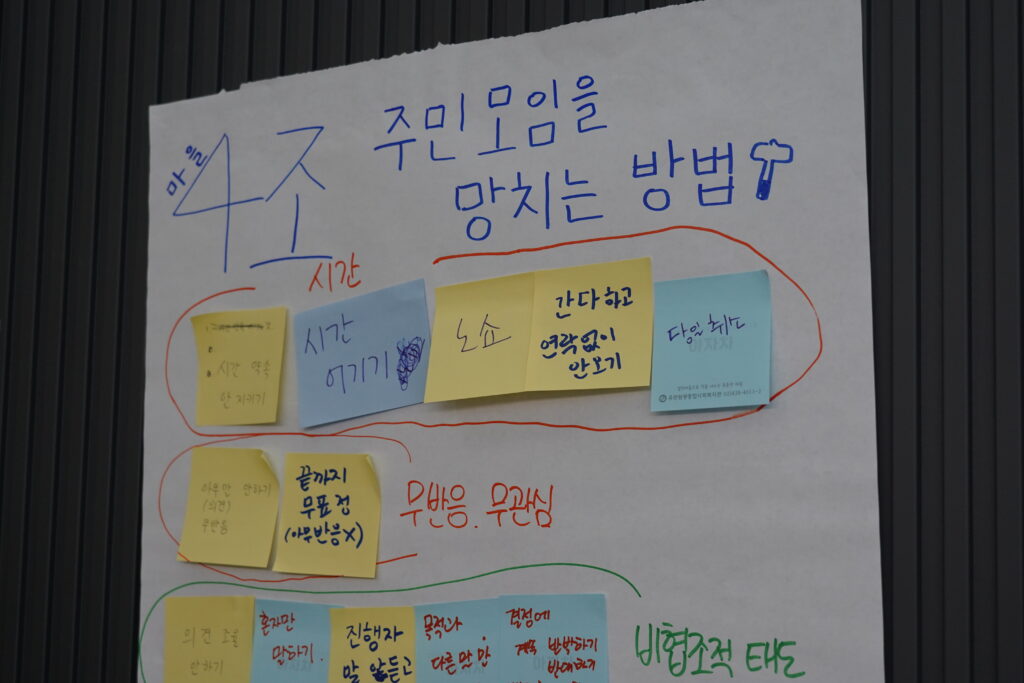 마을
4조
주민모임을
망치는 방법
시간
시간 약속
안 지키기
시간
어기기
노쇼
간다하고
연락없이
안오기
당일 취소
아무말 안하기
(의견)
무반응
끝까지
무표정
(아무반응X)
무반응. 무관심
의견 조율
안하기
혼자만
말하기.
진행자
말 안듣고
목적과
다른말만
결정에
계속 반박하기
반대하기
비협조적 태도